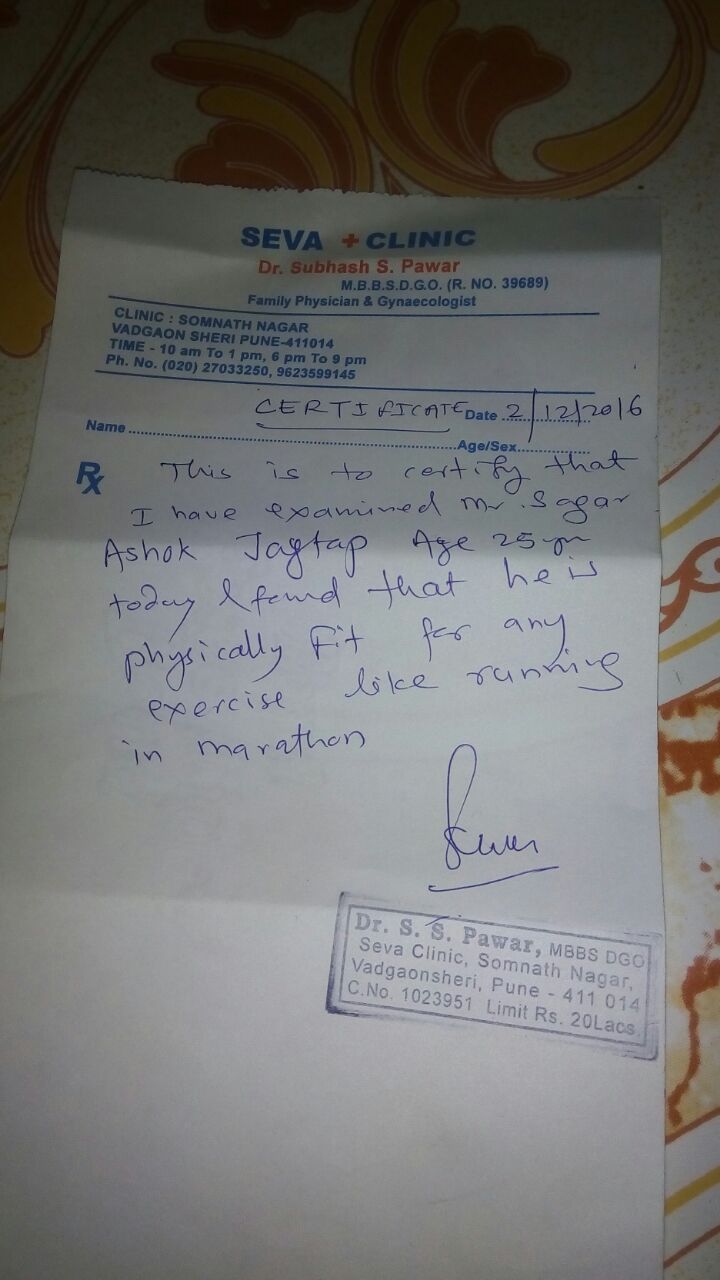 SEVA + CLINIC
Dr. Subhash S. Pawar
M.B.B.S.D.G.O. (R. NO. 39689)
Family Physician & Gynaecologist
CLINIC : SOMNATH NAGAR
VADGAON SHERI PUNE-411014
TIME - 10 am To 1 pm, 6 pm To 9 pm
Ph. No. (020) 27033250, 9623599145
CERTIFICATE Date 2/12/2016
Name Age/Sex
Rx This is to certify that
I have examined Mr. Sagar
Ashok Jagtap Age 25 yr
today & found that he is
physically fit for any
exercise like running
in marathon
Dr. S. S. Pawar, MBBS DGO
Seva Clinic, Somnath Nagar,
Vadgaonsheri, Pune - 411 014
C.No. 1023951 Limit Rs. 20Lacs.